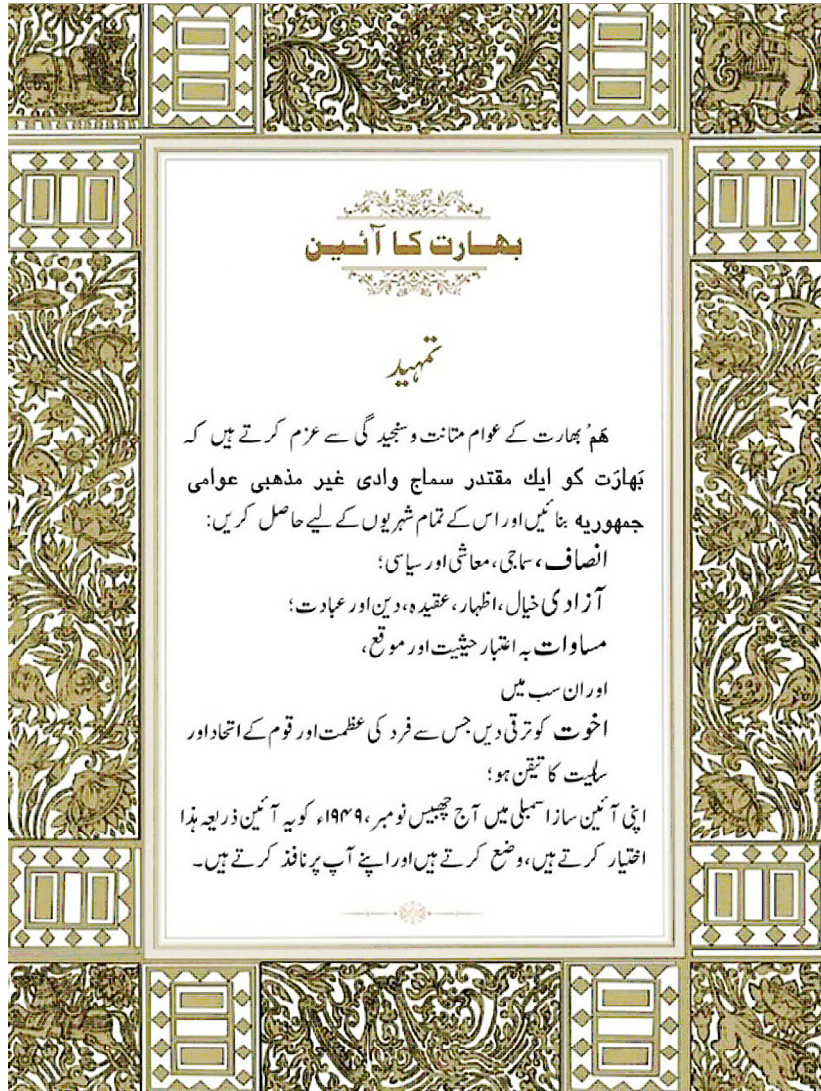 بھارت کا آئین
تمہید
ہَم بھارت کے عوام متانت و سنجیدگی سے عزم کرتے ہیں کہ
بَھارَت کو ایك مقتدر سماج وادی غیر مذھبی عوامی
جمہوریہ بنائیں اور اس کے تمام شہریوں کے لیے حاصل کریں:
انصاف، سماجی، معاشی اور سیاسی؛
آزادی خیال، اظہار، عقیدہ، دین اور عبادت؛
مساوات بہ اعتبار حیثیت اور موقع،
اور ان سب میں
اخوت کو ترقی دیں جس سے فرد کی عظمت اور قوم کے اتحاد اور
سالمیت کا تیقن ہو؛
اپنی آئین ساز اسمبلی میں آج چھبیس نومبر، ۱۹۴۹ء کو یہ آئین ذریعہ ہذا
اختیار کرتے ہیں، وضع کرتے ہیں اور اپنے آپ پر نافذ کرتے ہیں۔